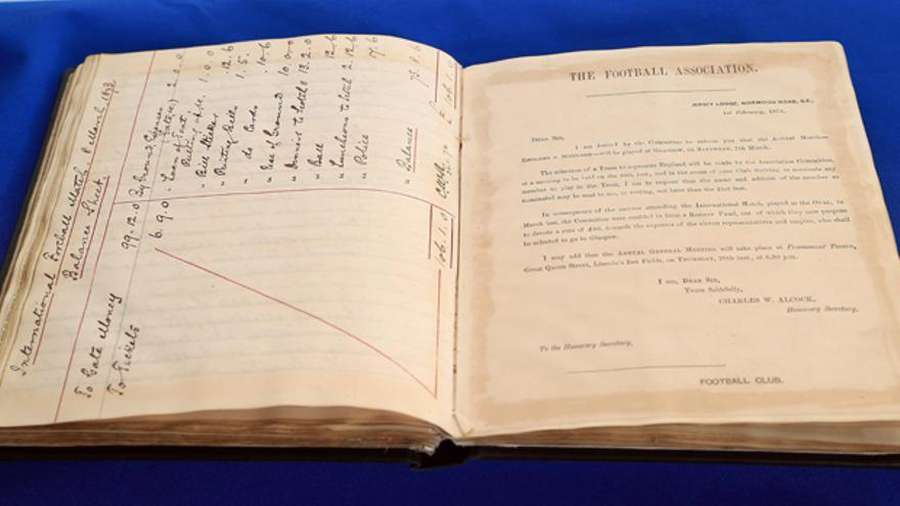 International Football Match 8 March 1873
Balance Sheet.
To Gate Money 99.12.0
To Tickets 6.9.0
106.1.0
By Ground Expenses
" Loan of Tent
" Bill Sticker 1.0
" Printing Bills 12.6
" do Cards 1.5.
" Use of Ground 10.
" Dinner to Scotch 13.2.0
" Ball 12.6
" Luncheons to Scotch 2.12.6
" Police 7.6
" Balance
106.1.0
THE FOOTBALL ASSOCIATION.
1st February, 1874.
DEAR SIR,
I am desired by the Committee to inform you that the ANNUAL MATCH—
ENGLAND v. SCOTLAND—will be played at GLASGOW, on SATURDAY, 7th March.
The selection of a Team to represent England will be made by the Association Committee,
at a meeting to be held on the 23rd inst., and in the event of your Club desiring to nominate any
member to play in the Team, I am to request that the name and address of the member so
nominated may be sent to me, in writing, not later than the 21st inst.
In consequence of the success attending the International Match, played at the OVAL, in
March last, the Committee were enabled to form a Reserve Fund, out of which they now propose
to devote a sum of towards the expenses of the eleven representatives and umpire, who shall
be selected to go to Glasgow.
I may add that the ANNUAL GENERAL MEETING will take place at FREEMASONS' TAVERN,
Great Queen Street, Lincoln's Inn Fields, on THURSDAY, inst., at 6.30 p.m.
I am, DEAR SIR,
Yours faithfully,
CHARLES W. ALCOCK,
Honorary Secretary.
To the Honorary Secretary,
FOOTBALL CLUB.